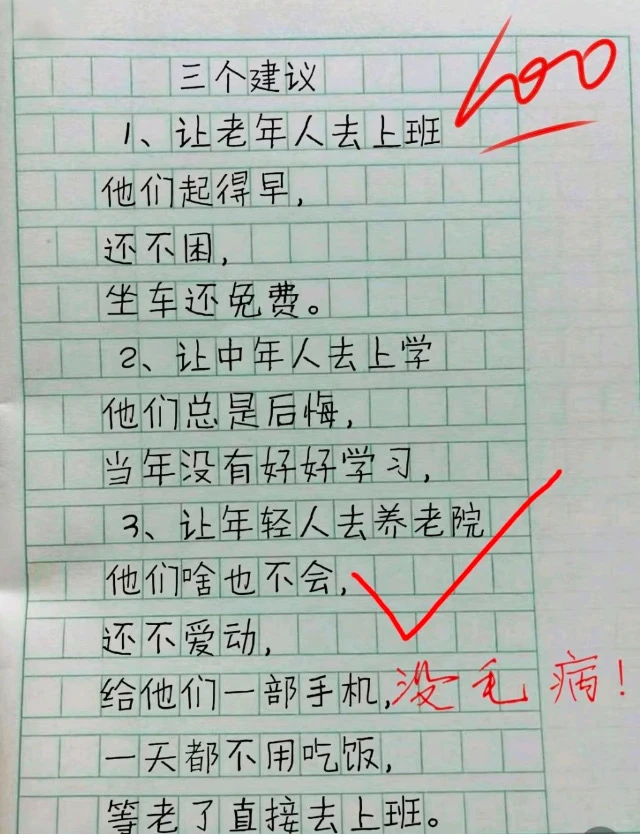 三个建议
100
1、让老年人去上班
他们起得早,
还不困,
坐车还免费。
2、让中年人去上学
他们总是后悔,
当年没有好好学习,
3、让年轻人去养老院
他们啥也不会,
还不爱动,
给他们一部手机,没毛病!
一天都不用吃饭,
等老了直接去上班。